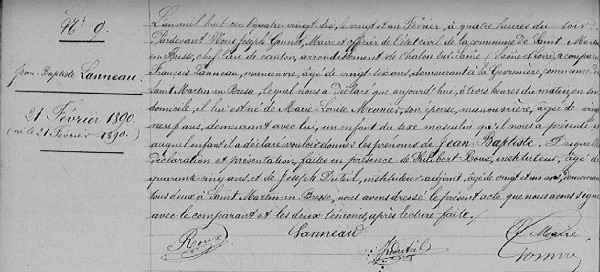 N° 9.
Jean-Baptiste Lanneau.
21 Février 1890.
(né le 21 Février 1890.)
L'an mil huit cent quatre vingt dix, le vingt et un Février, à quatre heures du soir
Pardevant Nous Joseph Maire et officier de l'état civil de la commune de Saint Martin
en Bresse, chef lieu de canton, arrondissement de Chalon sur Saône (Saône et Loire), a comparu
François Lanneau, manœuvre, âgé de vingt six ans, demeurant à la commune de
Saint Martin en Bresse, lequel nous a déclaré que aujourd'hui, à trois heures du matin, en son
domicile, il lui est né de Marie Louise Meunier, son épouse, manouvrière, âgée de vingt
neuf ans, demeurant avec lui, un enfant du sexe masculin qu'il nous a présenté et
auquel enfant il a déclaré vouloir donner les prénoms de Jean Baptiste. Desquelles
déclaration et présentation, faites en présence de Philibert Roux, instituteur, âgé de
quarante cinq ans, et de Joseph Duteil, instituteur adjoint, âgé de vingt et un ans, demeurant
tous deux à Saint Martin en Bresse, nous avons dressé le présent acte que nous avons signé
avec le comparant et les deux témoins, après lecture faite.
Roux Lanneau Duteil Le Maire